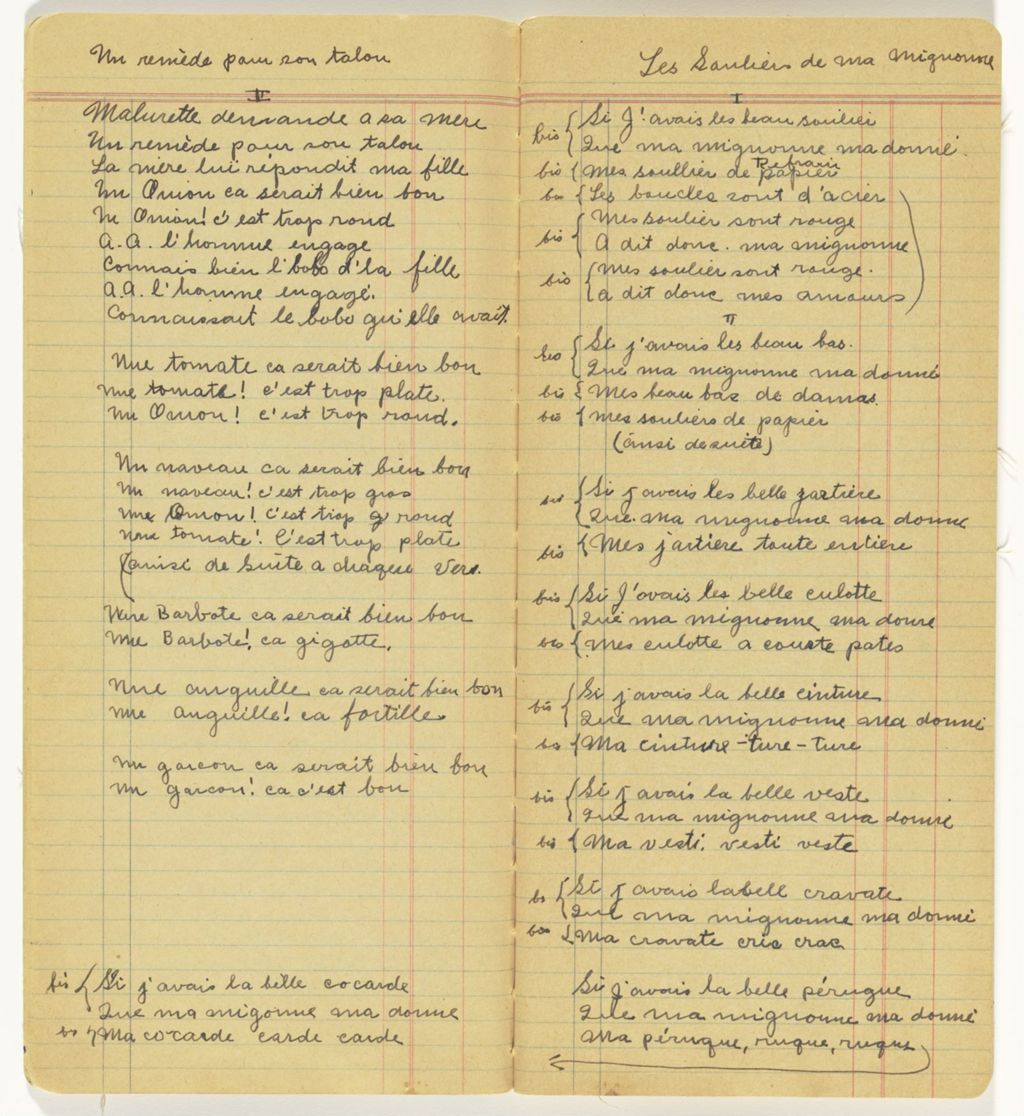 Un remède pour son talon
II
Malurette demande a sa mère
Un remède pour son talon
La mère lui répondit ma fille
Un Onion ca serait bien bon
Un Onion! c'est trop rond
A. A. l'homme engagé
Connais bien l'bobo d'la fille
A.A. l'homme engagé.
Connaissait le bobo qu'elle avait.
Une tomate ca serait bien bon
Une tomate! c'est trop plate.
Un Onion! c'est trop rond.
Un naveau ca serait bien bon
Un naveau! c'est trop gros
Une Onion! C'est trop rond
Une tomate! C'est trop plate
(ainsi de suite a chaque vers.
Une Barbote ca serait bien bon
Une Barbote! ca gigotte.
Une anguille ca serait bien bon
Une anguille! ca fortille
Un garcon ca serait bien bon
Un garcon! ca c'est bon
bis { Si j'avais la belle cocarde
Que ma migonne ma donne
bis { Ma cocarde carde carde
Les Souliers de ma mignonne
I
bis { Si J'avais les beau soulier
Que ma mignonne ma donné.
bis { Mes soullier de papier
Refrain
bis { Les boucles sont d'acier
bis { Mes soulier sont rouge
A dit donc. ma mignonne
bis { Mes soulier sont rouge.
A dit donc mes amours
II
bis { Si j'avais les beau bas.
Que ma mignonne ma donné
bis { Mes beau bas de damas.
bis { Mes souliers de papier
(ainsi de suite)
bis { Si j'avais les belle jartière
Que ma mignonne ma donne
bis { Mes jartière toute entière
bis { Si J'avais les belle culotte
Que ma mignonne ma donne
bis { Mes culotte a courte pates
bis { Si j'avais la belle cinture
Que ma mignonne ma donné
bis { Ma cinture-ture-ture
bis { Si j'avais la belle veste
Que ma mignonne ma donné
bis { Ma vesti. vesti veste
bis { Si j'avais la bell cravate
Que ma mignonne ma donné
bis { Ma cravate cric crac
Si j'avais la belle péruque
Que ma mignonne ma donné
Ma péruque, ruque, ruque